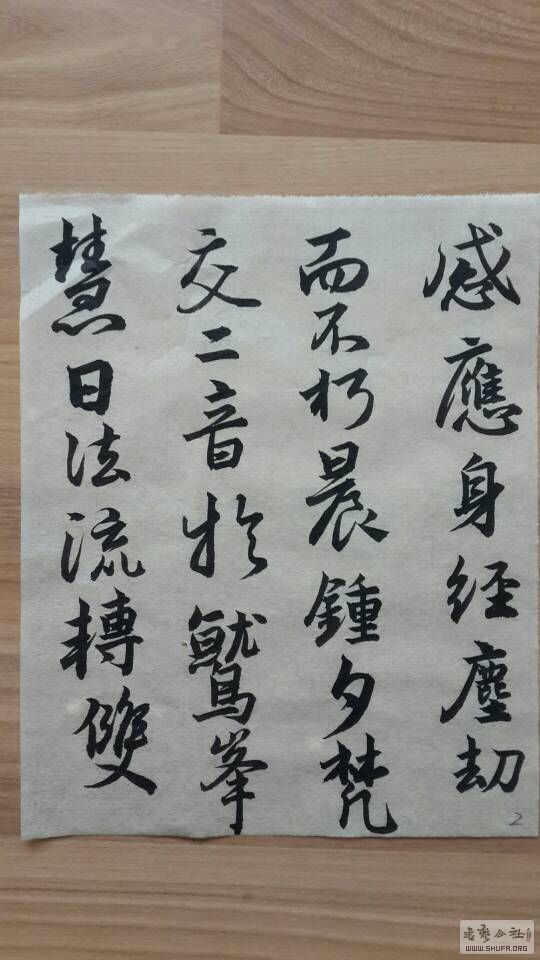 感應身經塵劫
而不朽晨鍾夕梵
交二音於鷲峯
慧日法流轉雙
2
书艺公社
WWW.SHUFA.ORG